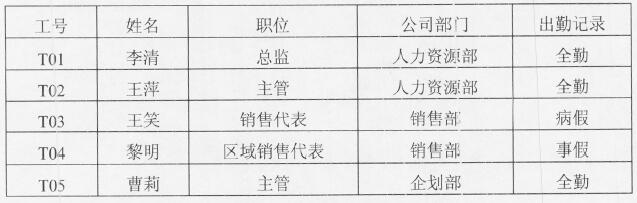 工号 姓名 职位 公司部门 出勤记录
T01 李清 总监 人力资源部 全勤
T02 王萍 主管 人力资源部 全勤
T03 王笑 销售代表 销售部 病假
T04 黎明 区域销售代表 销售部 事假
T05 曹莉 主管 企划部 全勤